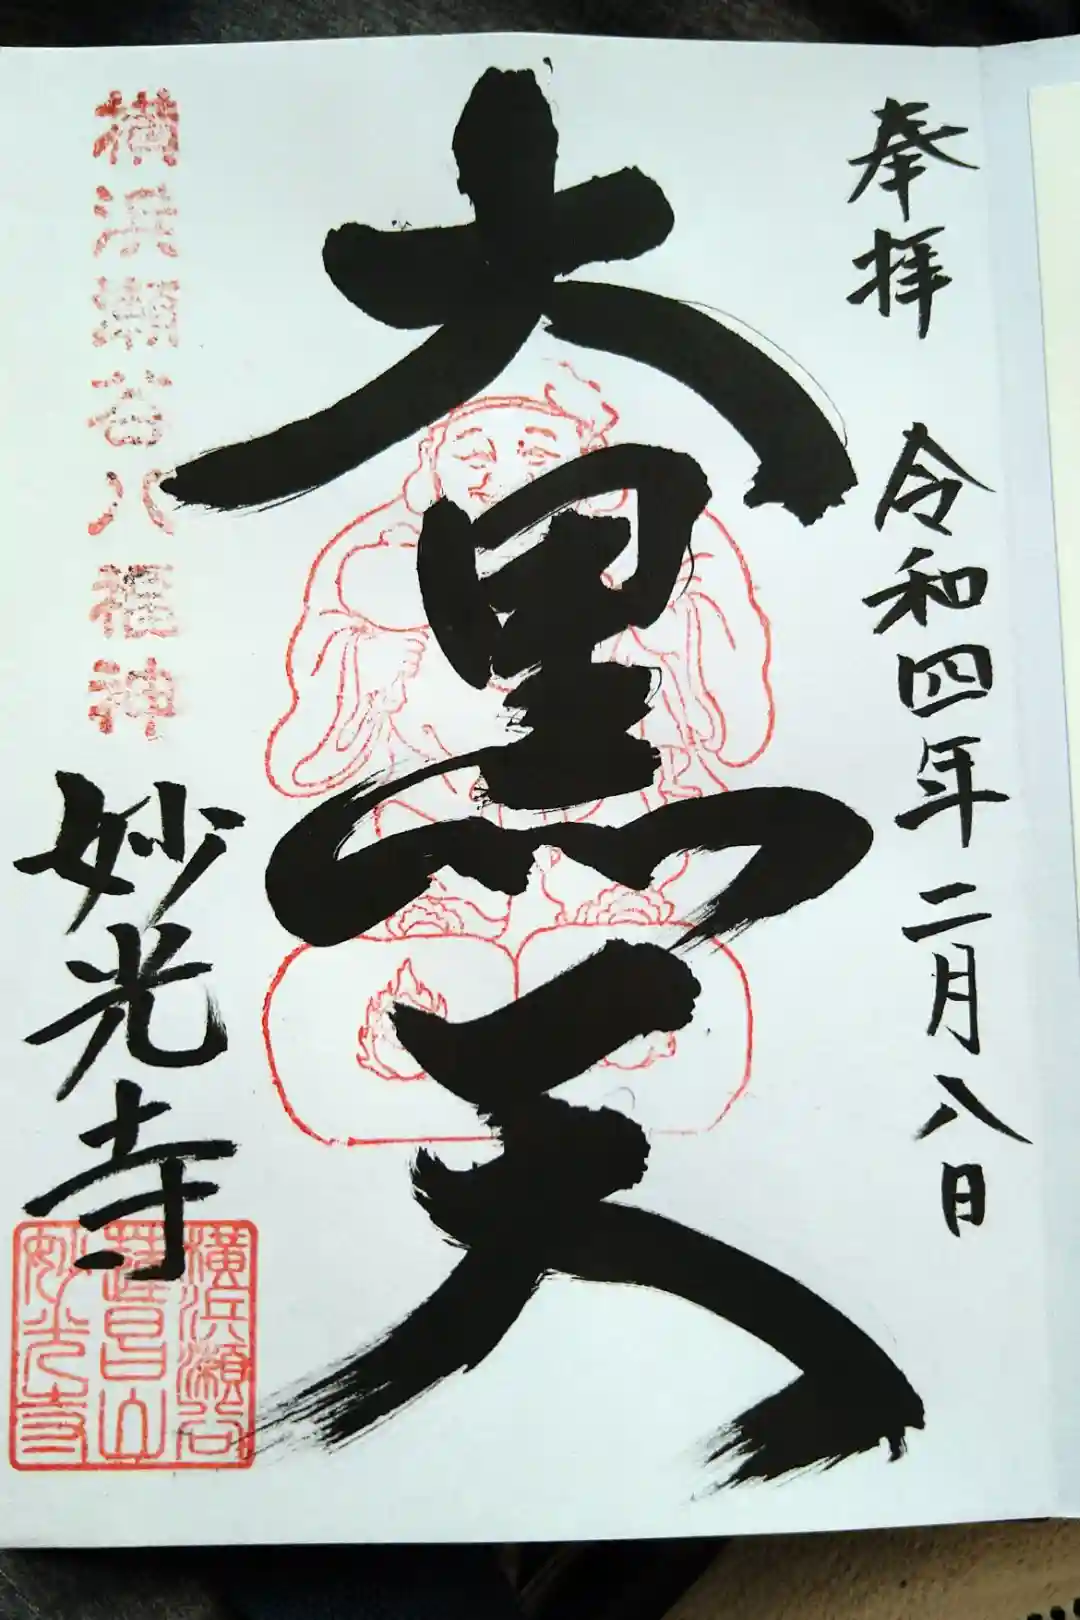 奉拝 令和四年二月八日
大黒天
横浜瀬谷八福神
妙光寺
横浜瀬谷
蓮昌山
妙光寺